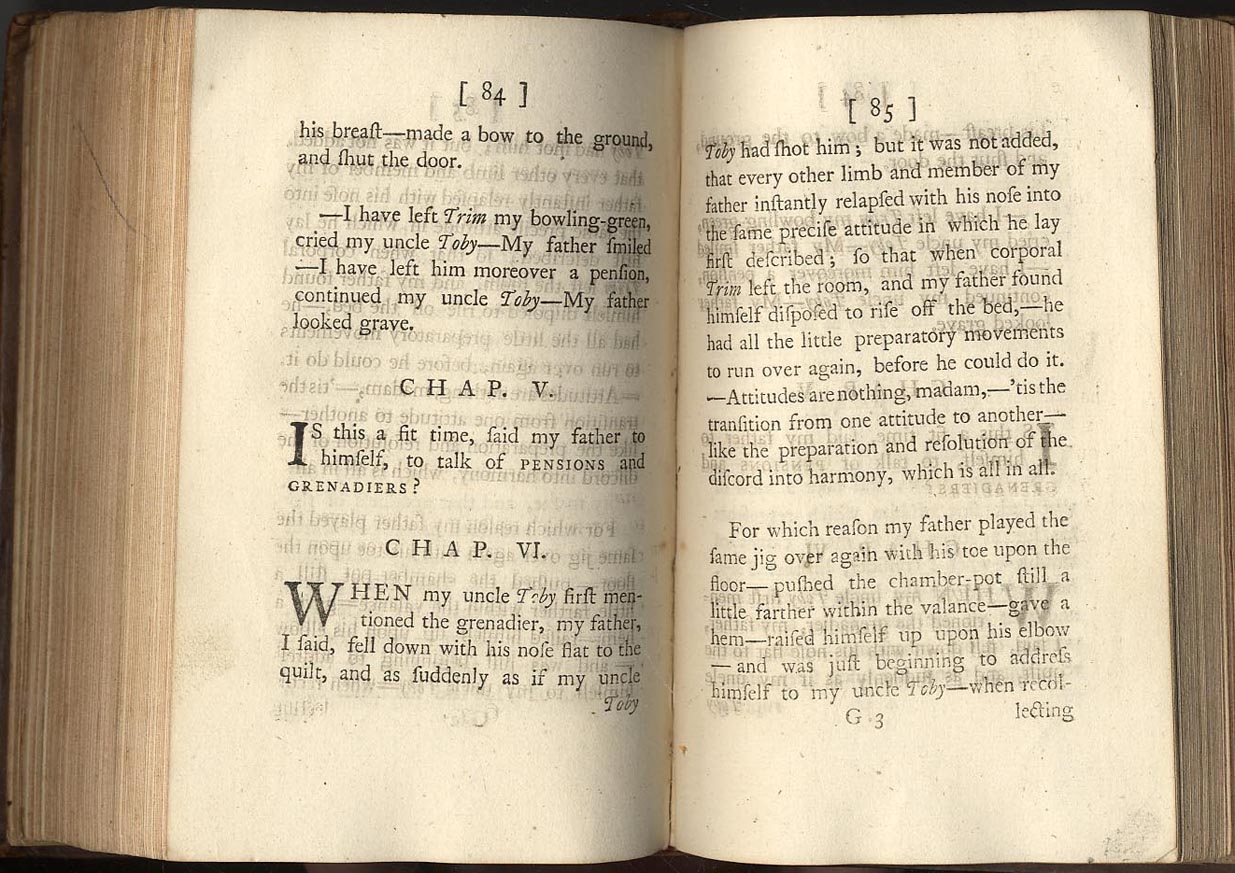 [ 84 ]
his breaſt—made a bow to the ground,
and ſhut the door.
—I have left Trim my bowling-green,
cried my uncle Toby—My father ſmiled
—I have left him moreover a penſion,
continued my uncle Toby—My father
looked grave.
CHAP. V.
IS this a fit time, ſaid my father to
himſelf, to talk of PENSIONS and
GRENADIERS?
CHAP. VI.
WHEN my uncle Toby firſt men-
tioned the grenadier, my father,
I ſaid, fell down with his noſe flat to the
quilt, and as ſuddenly as if my uncle
Toby
[ 85 ]
Toby had ſhot him; but it was not added,
that every other limb and member of my
father inſtantly relapſed with his noſe into
the ſame preciſe attitude in which he lay
firſt deſcribed; ſo that when corporal
Trim left the room, and my father found
himſelf diſpoſed to riſe off the bed,—he
had all the little preparatory movements
to run over again, before he could do it.
—Attitudes are nothing, madam,—'tis the
tranſition from one attitude to another—
like the preparation and reſolution of the
diſcord into harmony, which is all in all.
For which reaſon my father played the
ſame jig over again with his toe upon the
floor—puſhed the chamber-pot ſtill a
little farther within the valance—gave a
hem—raiſed himſelf up upon his elbow
—and was juſt beginning to addreſs
himſelf to my uncle Toby—when recol-
G 3 lecting